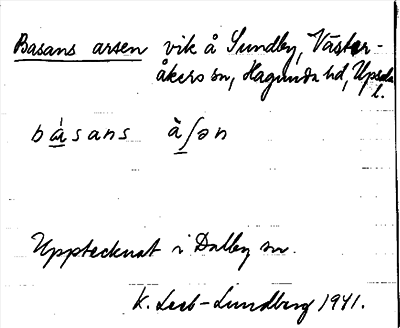 Basans arsen vik å Sundby, Väster-
åkers sn, Hagunda hd, Upsala
l.
básans àʃən
Upptecknat i Dalby sn.
K. Leeb-Lundberg 1941.